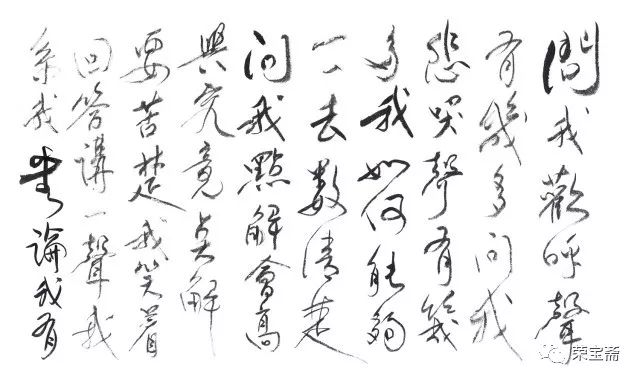 問我歡呼聲
有幾多問我
悲哭聲有幾
多我如何能夠
一一去數清楚
問我點解會高
興究竟点解
要苦楚我笑着
回答講一聲我
系我無論我有
荣宝斋